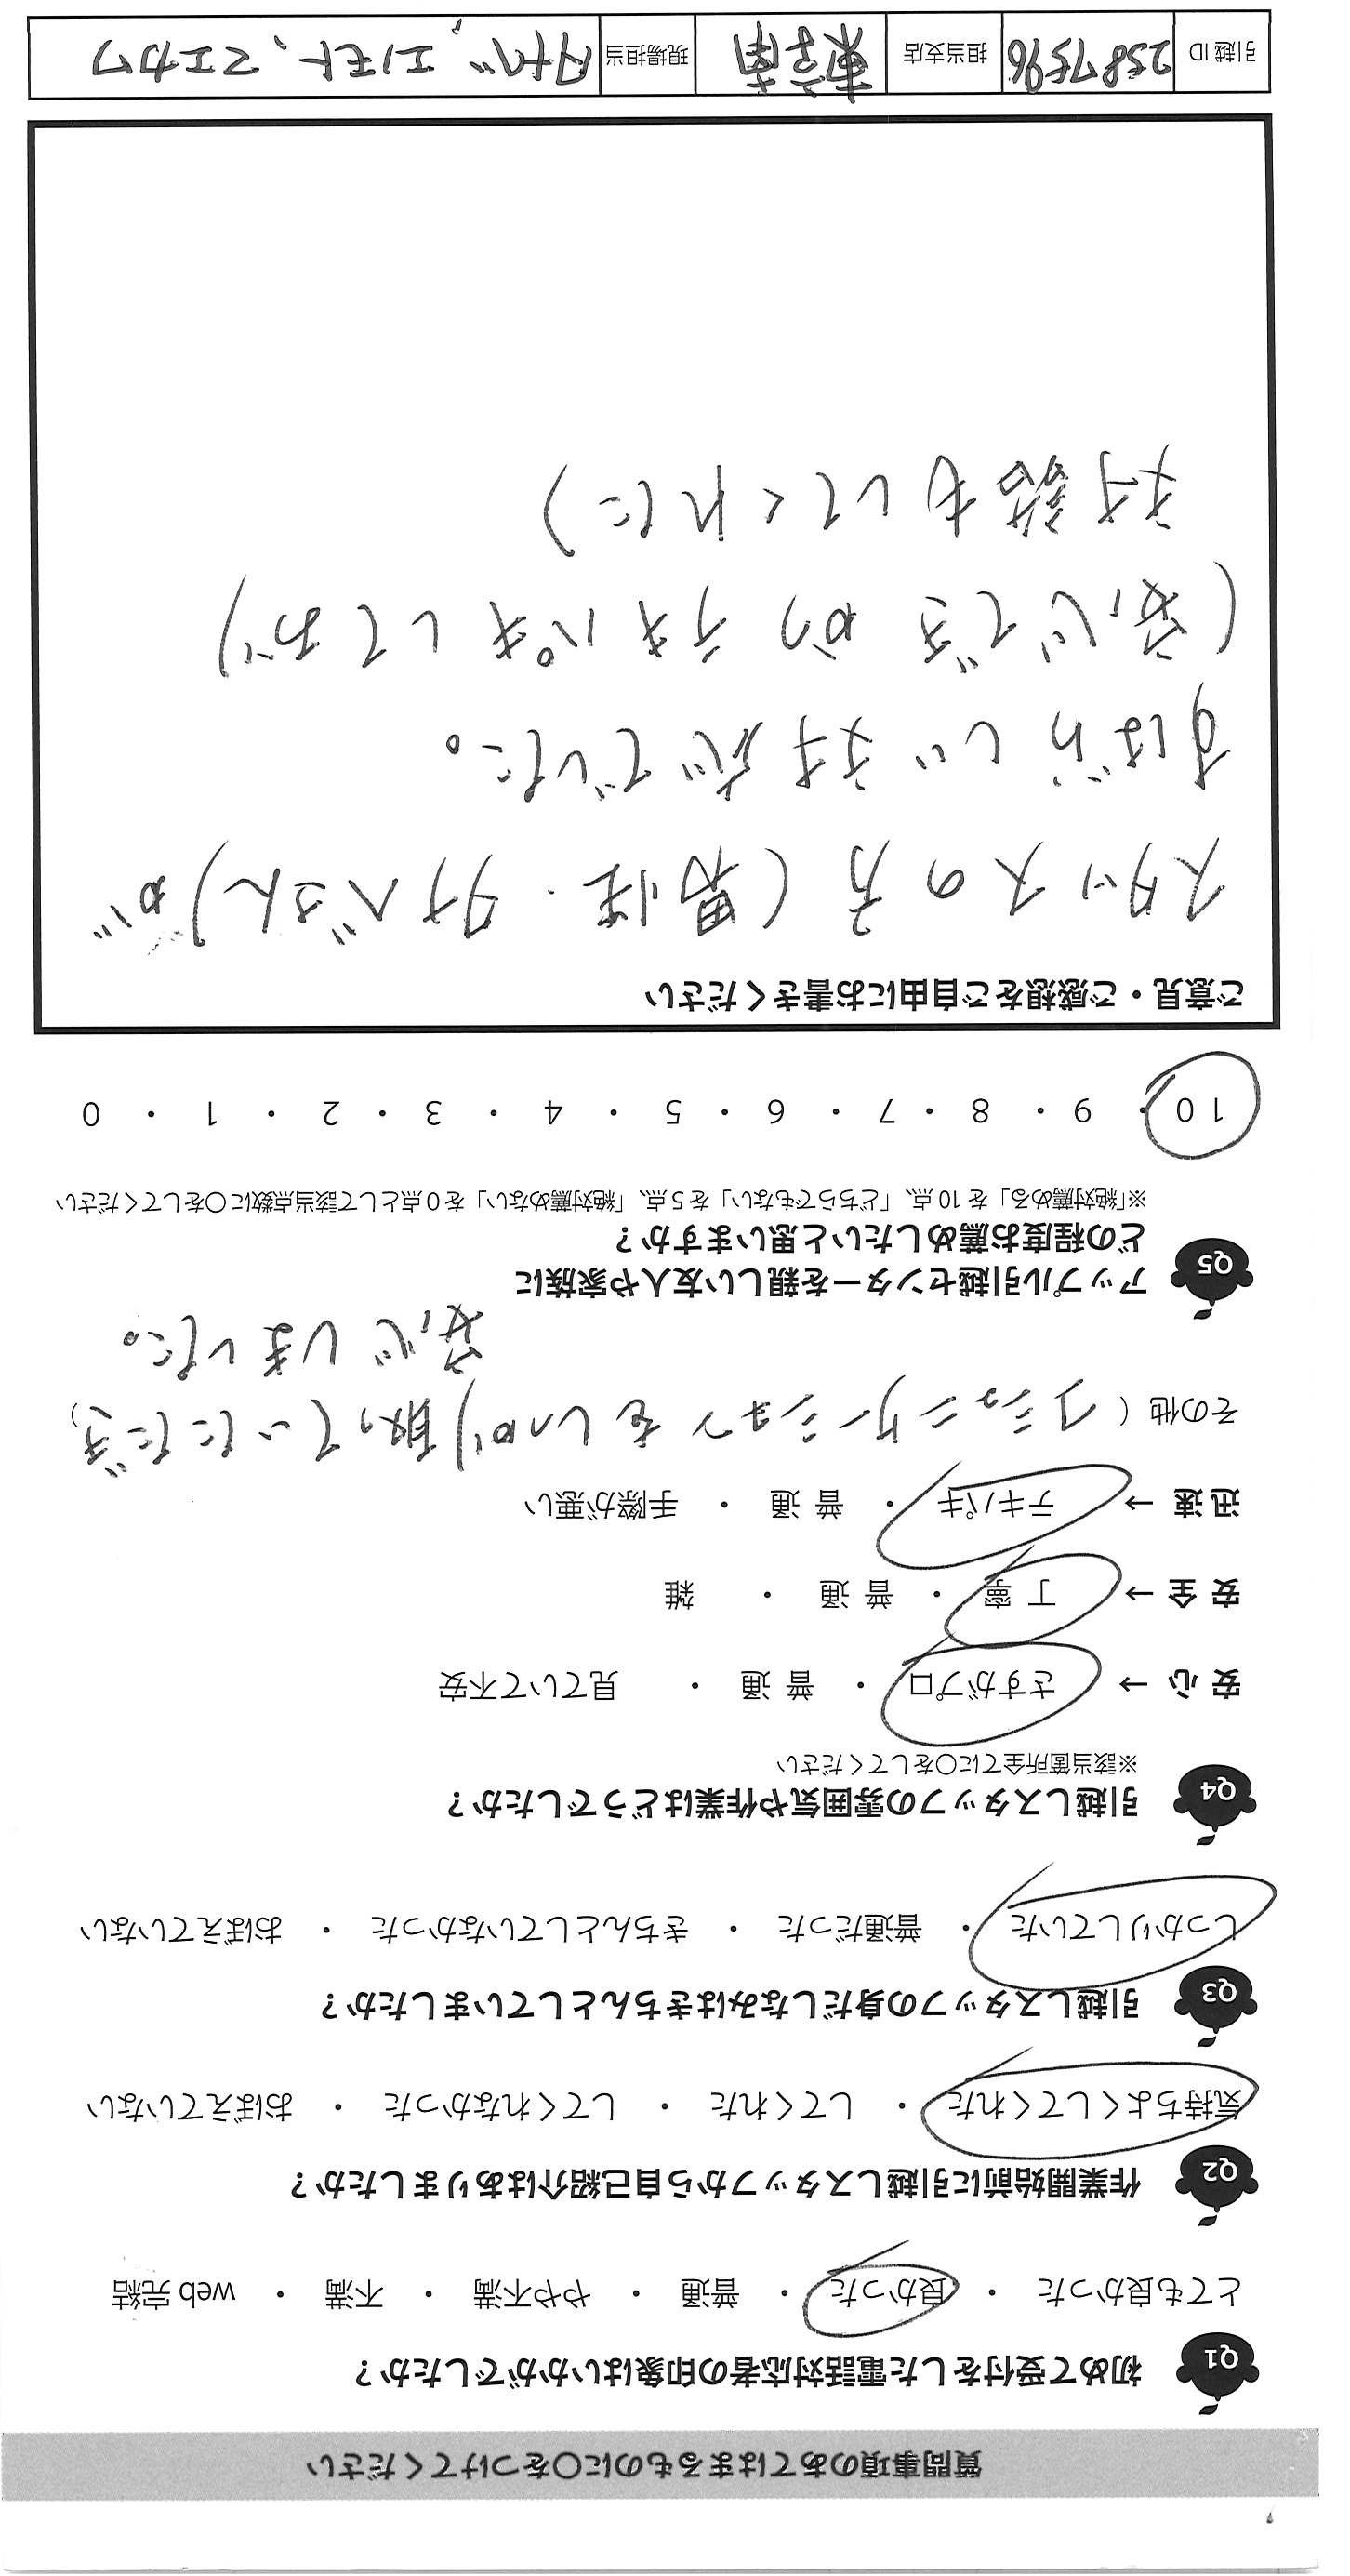 質問事項のあてはまるものに○をつけてください
Q1 初めて受付をした電話対応者の印象はいかがでしたか？
とても良かった ・ 良かった ・ 普通 ・ やや不満 ・ 不満 ・ web 完結
Q2 作業開始前に引越しスタッフから自己紹介はありましたか？
気持ちよくしてくれた ・ してくれた ・ してくれなかった ・ おぼえていない
Q3 引越しスタッフの身だしなみはきちんとしていましたか？
しっかりしていた ・ 普通だった ・ きちんとしていなかった ・ おぼえていない
Q4 引越しスタッフの雰囲気や作業はどうでしたか？
※該当箇所全てに○をしてください
安 心 → さすがプロ ・ 普 通 ・ 見ていて不安
安 全 → 丁 寧 ・ 普 通 ・ 雑
迅 速 → テキパキ ・ 普 通 ・ 手際が悪い
その他（ コミュニケーションをしっかり取っていただき、
安心しました。
Q5 アップル引越センターを親しい友人や家族に
どの程度お薦めしたいと思いますか？
※「絶対薦める」を 10 点、「どちらでもない」を 5 点、「絶対薦めない」を 0 点として該当点数に○をしてください
10 ・ 9 ・ 8 ・ 7 ・ 6 ・ 5 ・ 4 ・ 3 ・ 2 ・ 1 ・ 0
ご意見・ご感想をご自由にお書きください
スタッフの方（男性・タナベさん）が
すばらしい対応でした。
（安心でき かつ テキパキしており
対話もしてくれた）
引越 ID 25877596 担当支店 東京南 現場担当 タナベ、エノモト、マエカワ